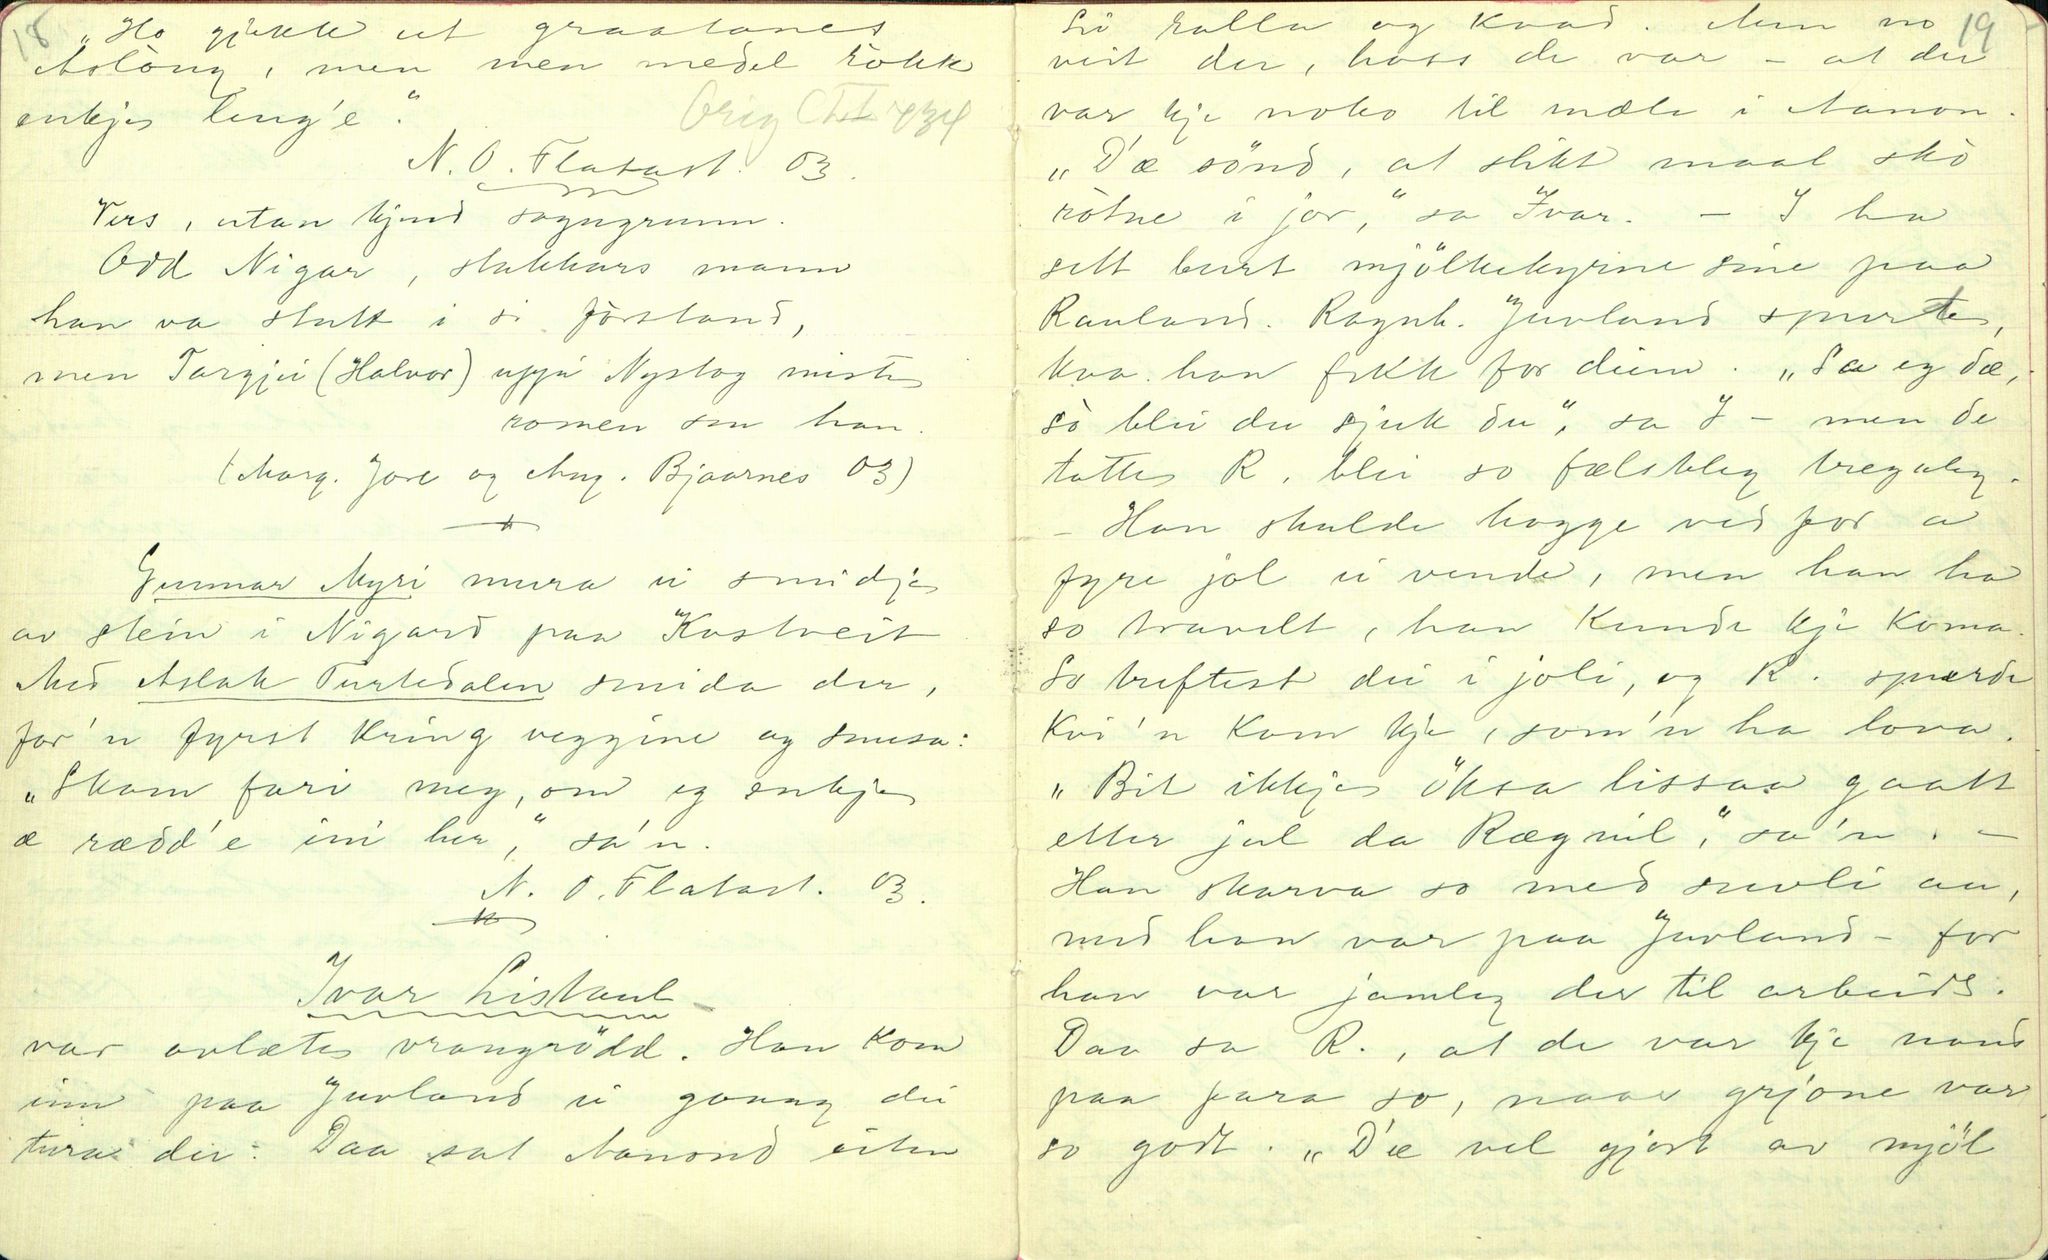 18
„Ho gjekk ut graatanes
Aslòug, men men medel ròkk
enkjes leng'e".
Orig
N. O. Flatast. 03.
Vers, utan kjend sogugrunn.
Odd Nigar, stakkars mann
han va stutt i si fòrstand,
men Targjei (Halvor) uppi Nystog miste
romen sm han.
(Marg. Jore og Aug. Bjaarnes 03)
Gunnar Myri mura ei smidje
av stein i Nigard paa Kostveit
Med Aslak Turtedalen smida der,
for'n fyrst kring veggine og snusa:
„Skam fari meg, om eg enkjes
æ rædd'e inni her," sa'n.
N. O. Flatast. 03.
Ivar Listaul
var avlætes vrangrödd. Han kom
inn paa Juvland ei gaang dei
tura der. Daa sat Aanond
19
So ralla og kvad. Men no
veit der, hoss de var – at dei
var kje noko til mæle i Aanon.
„D'æ sönd, at slikt maal skò
ròtne i jor," sa Ivar. – I ha
sett burt mjölkekyrine sine paa
Rauland. Ragnh. Juvland spurte,
kva han fekk for deim. „Sa eg dæ,
sò blei du sjuk du", sa I – men de
tottes R. blei so fælskleg tregaleg.
– Han skulde hogge ved for a
fyre jol ei vende, men han ha
so travelt, han kunde kje koma.
So treftest dei i joli, og R. spurde
kvi'n kom kje, som'n ha lova.
„Bit ikkjes öksa lissaa gaatt
etter jul da Rægnil," sa'n. –
Han skarva so med suvli au,
med han var paa Juvland – for
han var jamleg der til arbeids.
Daa sa R., at de var kje naud
paa fara so, naar grjone var
so godt. „D'æ vel gjort av mjöl